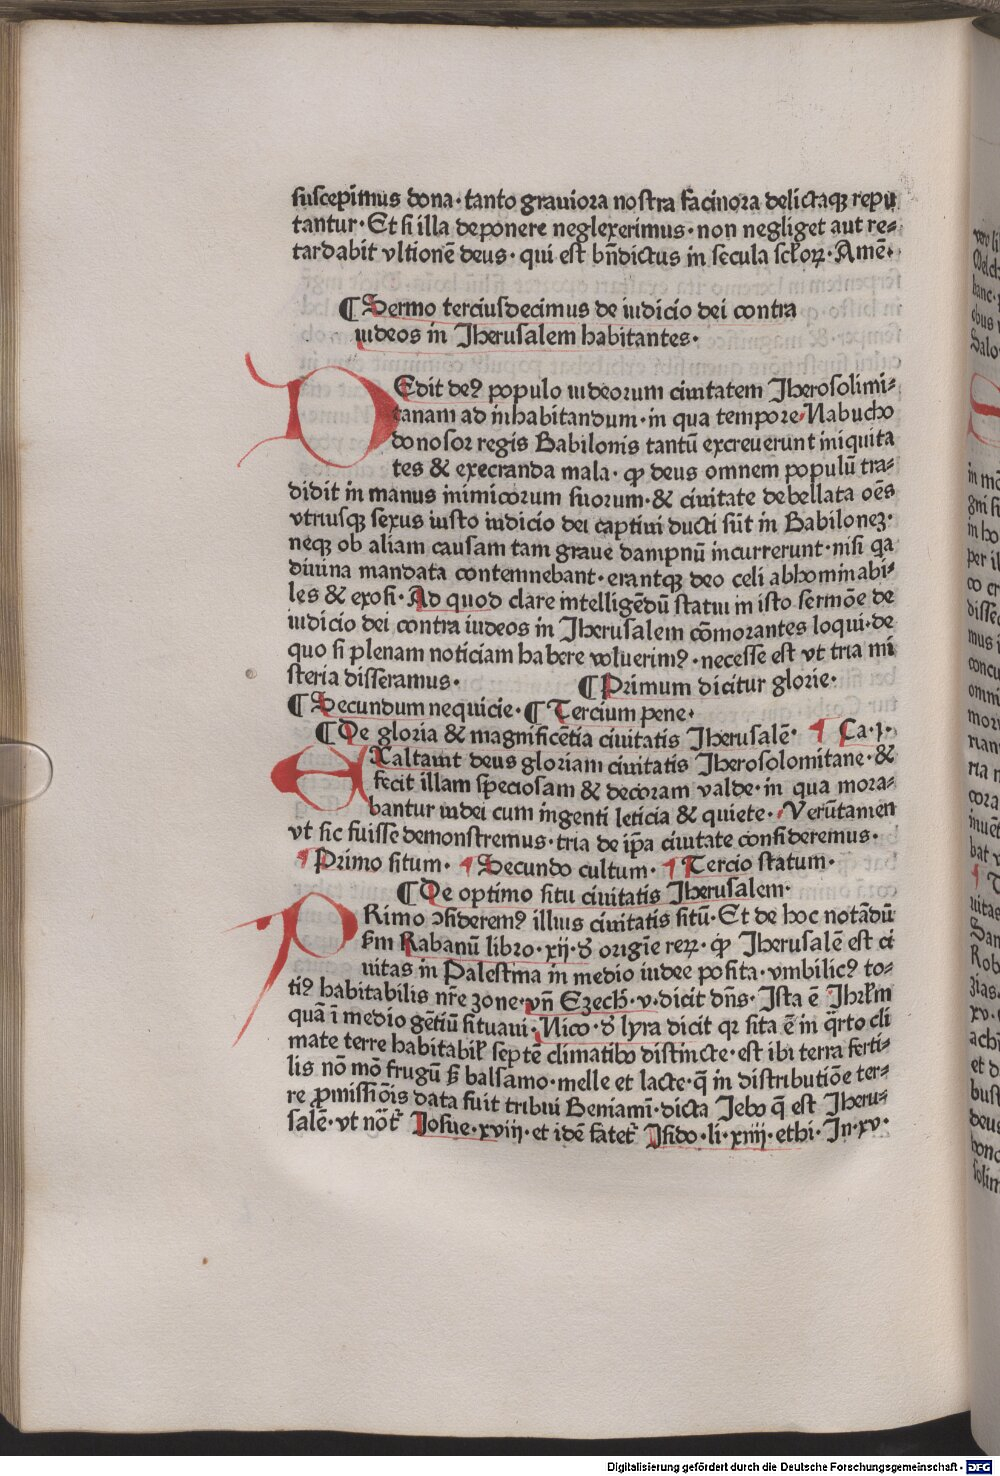 suscepimus dona · tanto graviora nostra facinora delictaqꝫ repu
tantur · Et si illa deponere neglexerimus · non negliget aut re⸗
tardabit vltionē deus · qui est bn̄dictus in secula scl̓oꝝ · Amē ·
¶ Sermo terciusdecimus de iudicio dei contra
iudeos in Jherusalem habitantes ·
DEdit deꝰ populo iudeorum ciuitatem Jherosolimi⸗
tanam ad inhabitandum · in qua tempore Nabucho
donosor regis Babilonis tantū excreuerunt iniquita
tes & execranda mala · ꝙ deus omnem populū tra⸗
didit in manus inimicorum suorum · & ciuitate debellata oēs
vtriusqꝫ sexus iusto iudicio dei captiui ducti sūt in Babiloneꝫ ·
neqꝫ ob aliam causam tam graue dampnū incurrerunt · nisi qa
diuina mandata contemnebant · erantqꝫ deo celi abhominabi⸗
les & exosi · Ad quod clare intelligēdū statui in isto sermōe de
iudicio dei contra iudeos in Jherusalem cōmorantes loqui · de
quo si plenam noticiam habere voluerimꝰ · necesse est vt tria mi
steria disseramus · ¶ Primum dicitur glorie ·
¶ Secundum nequicie · ¶ Tercium pene ·
¶ De gloria & magnificētia ciuitatis Jherusalē · ¶ Ca · j ·
EXaltauit deus gloriam ciuitatis Jherosolomitane · &
fecit illam speciosam & decoram valde · in qua mora⸗
bantur iudei cum ingenti leticia & quiete · Verūtamen
vt sic fuisse demonstremus · tria de ip̄a ciuitate consideremus ·
¶ Primo situm · ¶ Secundo cultum · ¶ Tercio statum ·
¶ De optimo situ ciuitatis Jherusalem ·
PRimo ↄsideremꝰ illius ciuitatis sitū · Et de hoc notādū
scd̓m Rabanū libro · xij · d̓ origīe reꝝ · ꝙ Jherusalē est ci
uitas in Palestina in medio iudee posita · vmbilicꝰ to⸗
tiꝰ habitabilis nr̄e zone · vn̄ Ezech̓ · v · dicit dn̄s · Ista ē Jhrl̓m
quā ī medio gētiū situaui · Nico · d̓ lyra dicit qꝛ sita ē in q̈rto cli
mate terre habitabil̓ septē climatibꝰ distincte · est ibi terra ferti⸗
lis nō mō frugū sꝫ balsamo · melle et lacte · q̄ in distributiōe ter⸗
re ꝓmissiōis data fuit tribui Beniamī · dicta Jebo q̄ est Jheru⸗
salē · vt not̄ Josue · xviij · et idē fatet̄ Isido · li · xiiij · ethi · In · xv ·
Digitalisierung gefördert durch die Deutsche Forschungsgemeinschaft · DFG